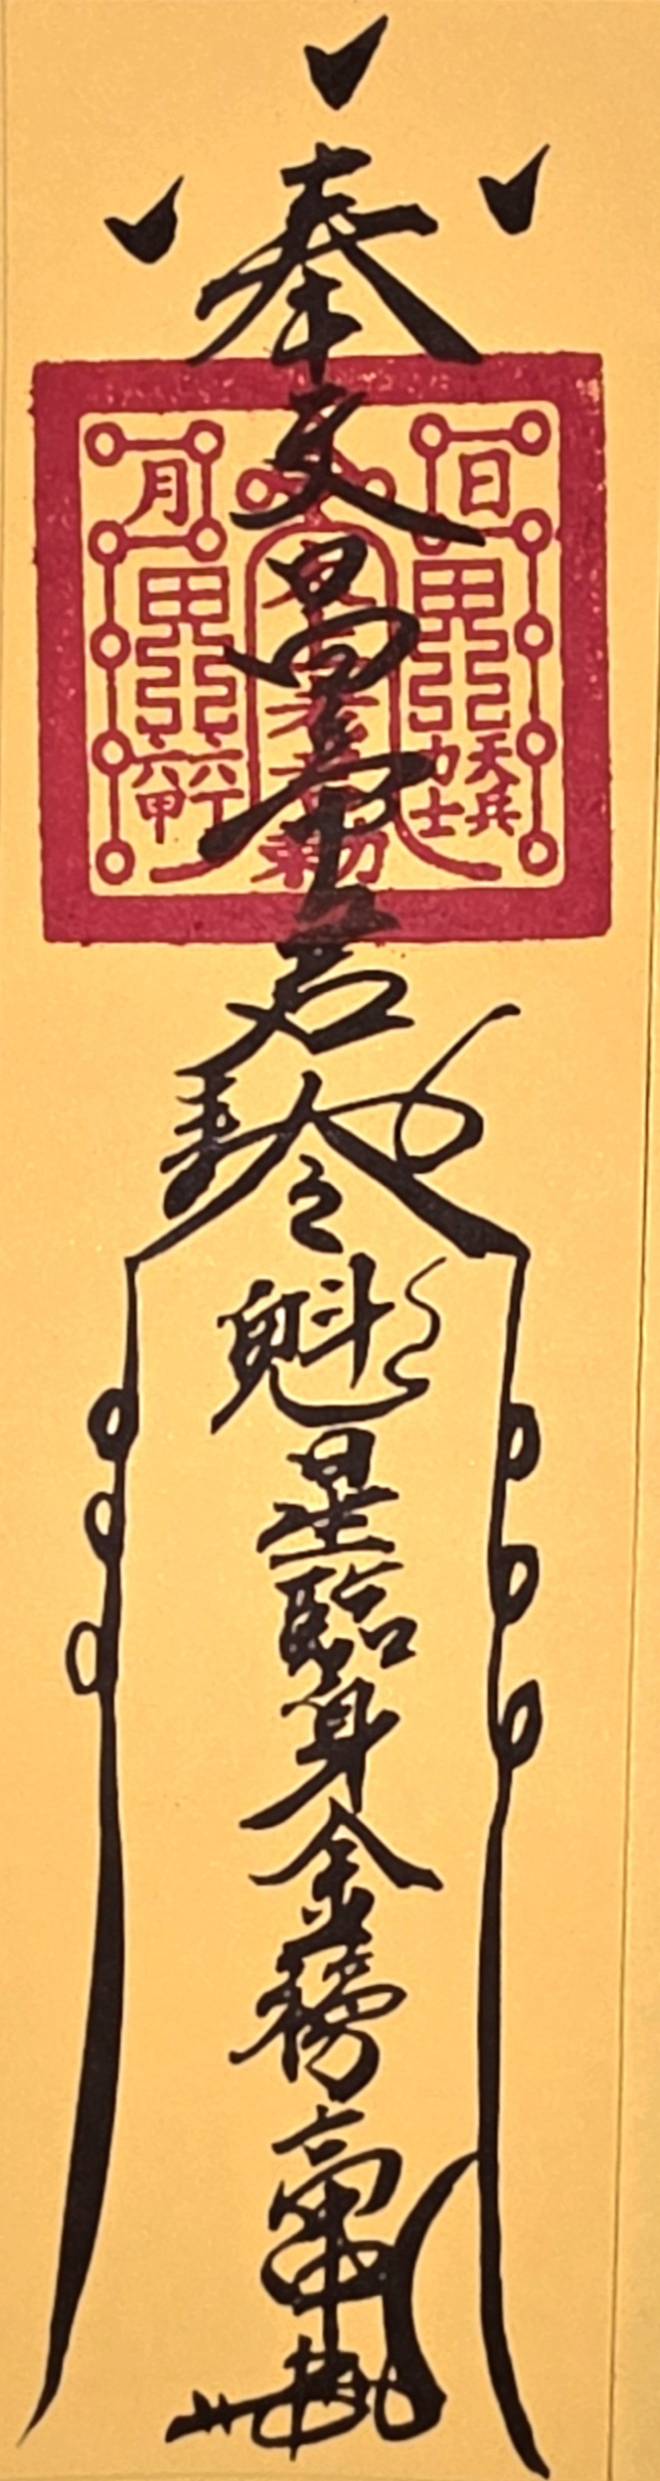 奉文昌帝君敕令
魁星臨身金榜高中
日
月
天兵
力士
六丁
六甲
太上老君敕